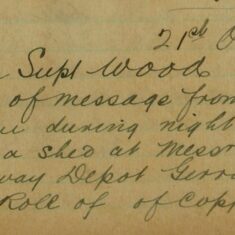 21st O
Supt Woods
of message from
during night
a shed at Messr
way Depot Gerri
Roll of of Copp